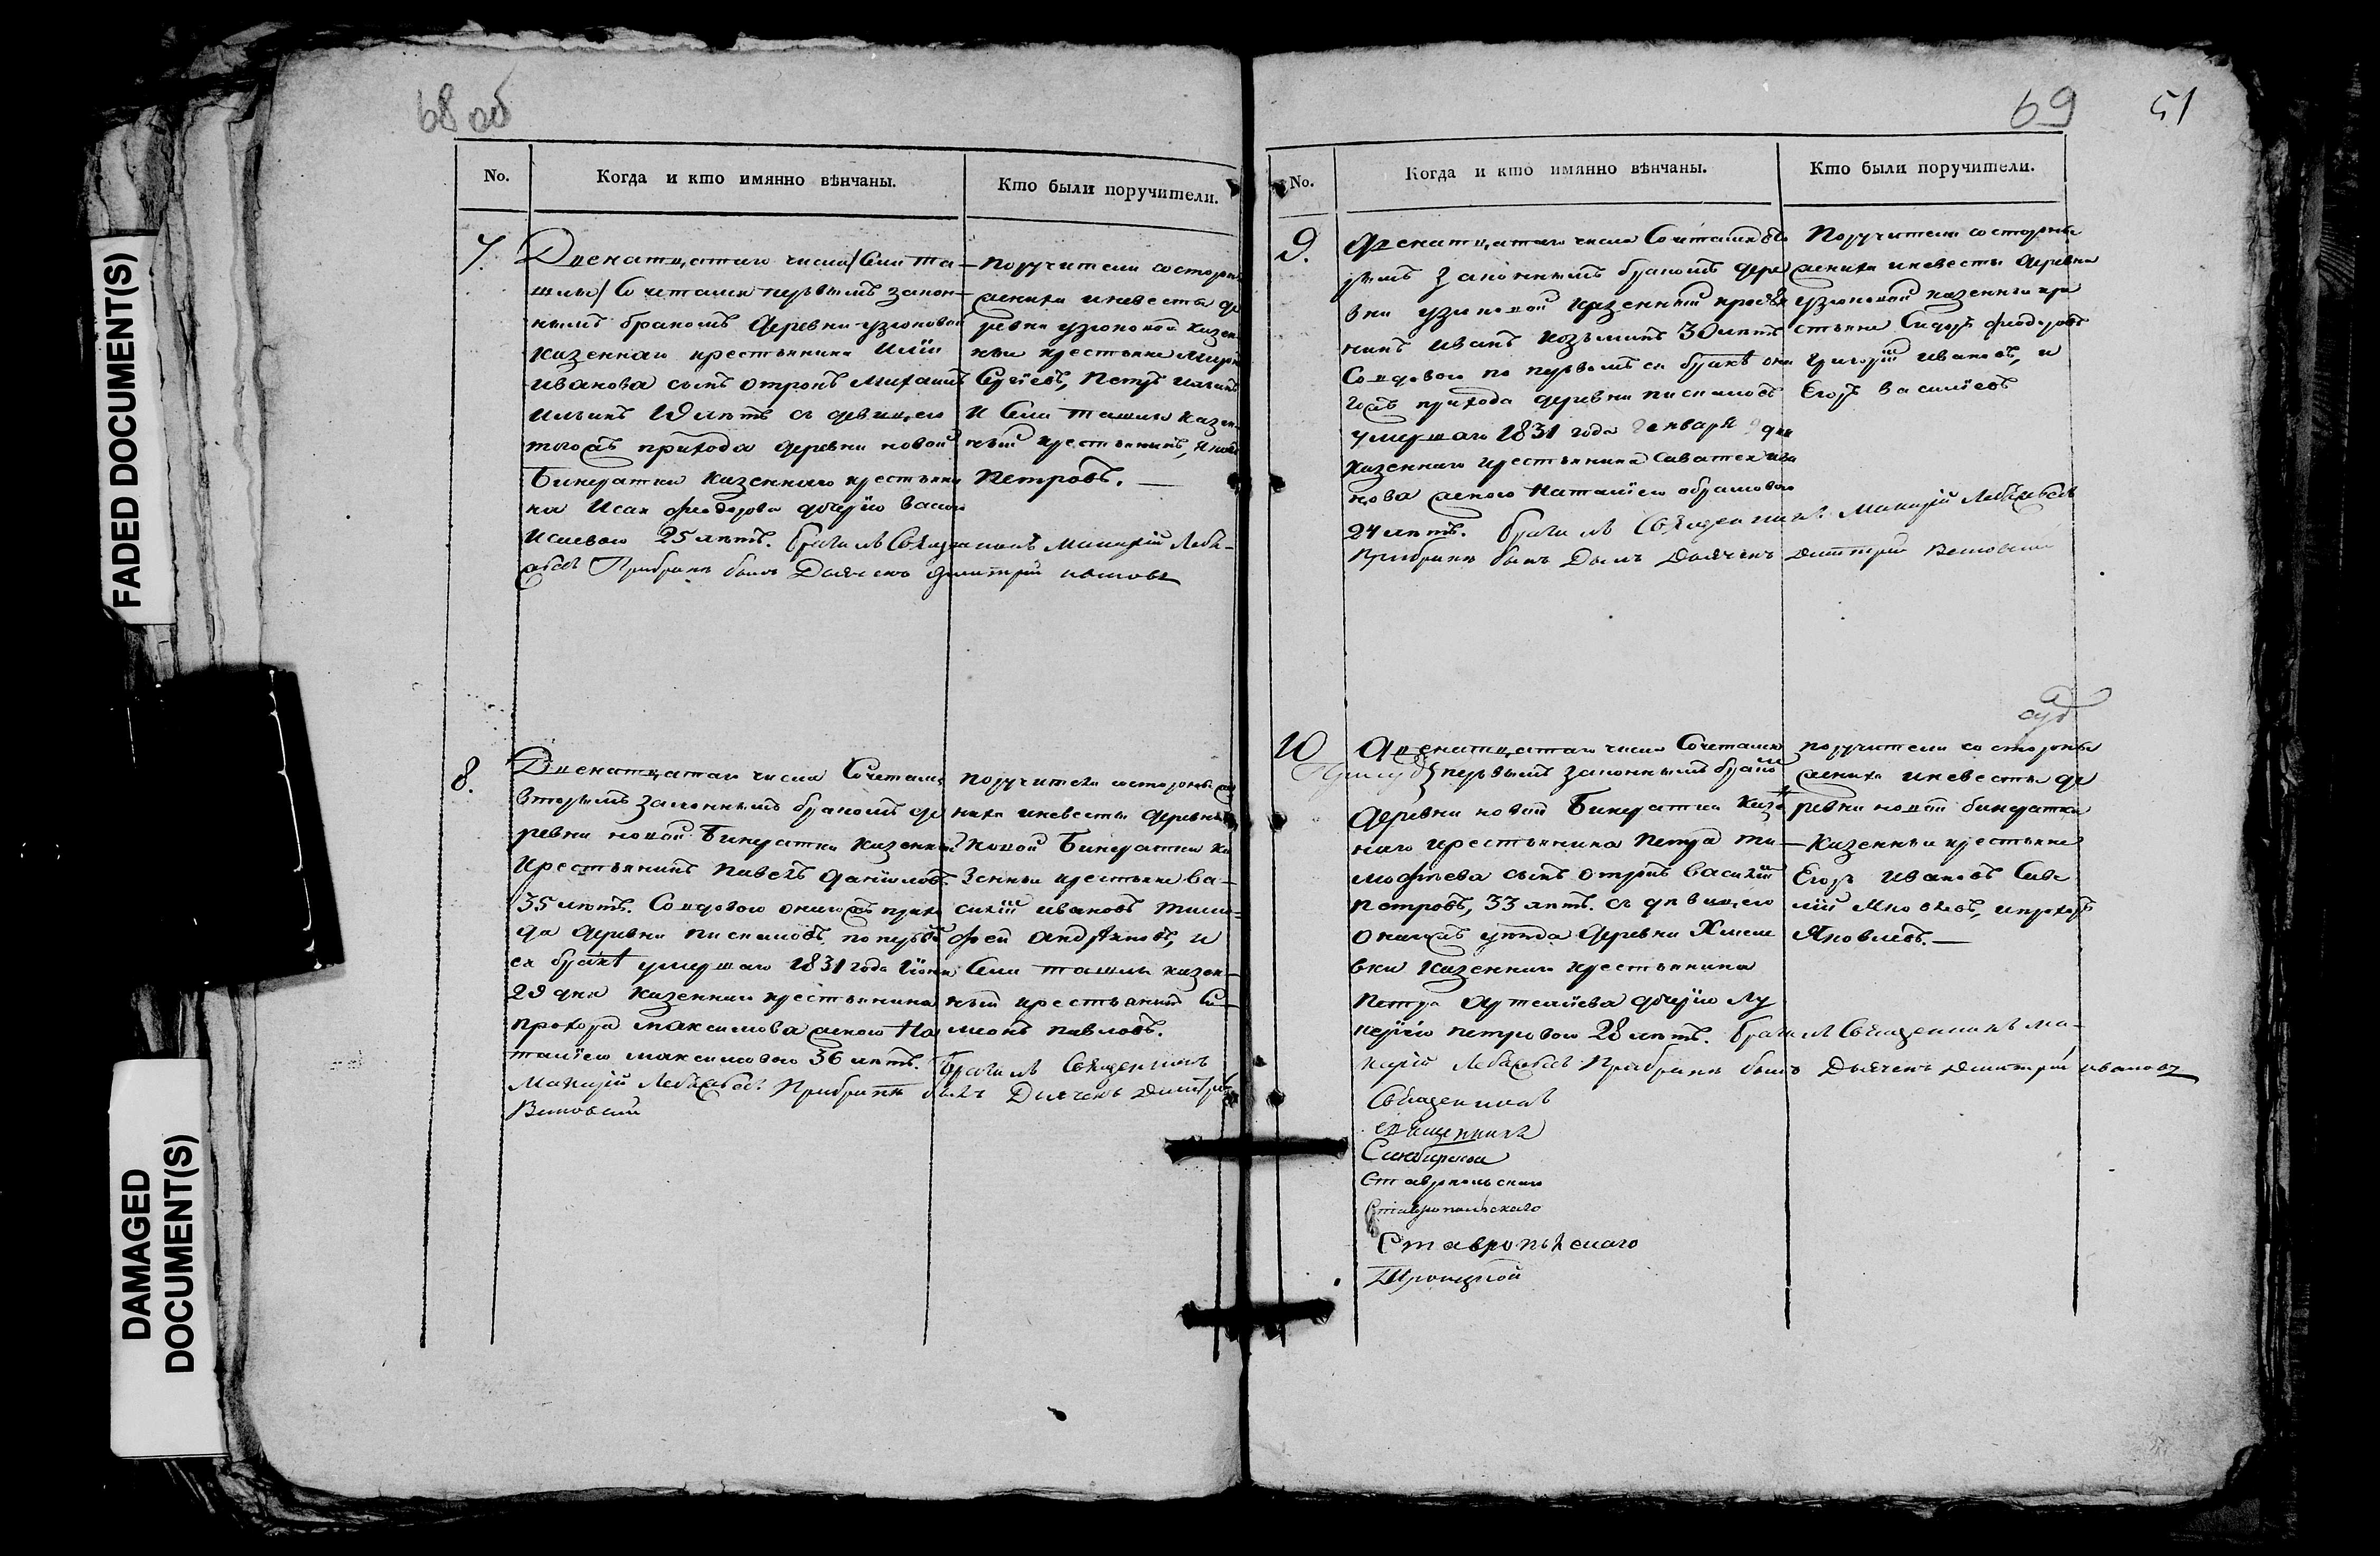 FADED DOCUMENT(S)
DAMAGED
DOCUMENT(S)
68 об
No.
Когда и кто имянно вѣнчаны.
Кто были поручители.
7.
Двенатцатаго числа /Села Та-
шлы/ Сочетались первымъ закон-
нымъ бракомъ деревни узюковой
казеннаго крестьянина Иліи
Иванова сынъ отрокъ Михаилъ
Ильинъ 19 летъ съ девицею
тогожъ прихода деревни новой
Бинератки казеннаго крестьяни
на Исая феодорова дочерью
Исаевою 25 летъ. брачилъ Священникъ Макарій Лебе-
Прибракѣ былъ Дьячекъ димитрій
Поручители состороны
жениха иневесты де
ревни узюковой казен
ныи крестьяне
Сергѣевъ, Петръ
И Села ташлы казен
ный крестьянинъ,
Петровъ.
8.
Двенатцатаго числа Сочетались
вторымъ законнымъ бракомъ де
ревни новой Бинератки казенный
Крестьянинъ Павелъ Даниловъ
35 летъ. Совдовою онагожъ прихо
да деревни писмаловъ, по первомъ
ея бракѣ умершаго 1831 года Іюня
29 дня казеннаго крестьянина
Прохора Максимова женою На
таліею максимовою 36 летъ. Брачилъ Священникъ
Макарій Прибракѣ былъ Дьячекъ Димитрій
поручители состороны же
ниха иневесты деревни
новой Бинератки ка
зенныи крестьяне Ва-
силій Ивановъ Тимо-
фей Андрѣяновъ, и
Села ташлы казен-
ный крестьянинъ Си-
монъ павловъ.
69
51
No.
Когда и кто имянно вѣнчаны.
Кто были поручители.
9.
Двенатцатаго числа Сочетались вто
рымъ законнымъ бракомъ дере
вни узюковой казенный крестья
нинъ Иванъ козьминъ 30 летъ
Совдовою по первомъ ея бракѣ она
гожъ прихода деревни писмаловъ
умершаго 1831 года генваря 9 дня
казеннаго крестьянина Саватея ива
нова женою наталіею абрамовою
24 летъ. брачилъ Священникъ Макарій
Прибракѣ былъ Дьячекъ димитрій
Поручители состороны
жениха иневесты деревни
узюковой казенныи кре
стьяне Сидоръ феодоровъ
Григорій Ивановъ, и
Егоръ Василіевъ
10
Двенатцатаго числа Сочетались
первымъ законнымъ брако
деревни новой Бинератки казе
ннаго крестьянина Петра ти-
мофѣева сынъ отрокъ василій
петровъ, 33 летъ. съ девицею
онагожъ уезда деревни Хмеле
вки казеннаго крестьянина
Петра дочерью Лу
керіею петровою 28 летъ. брачилъ Священникъ ма-
карій Прибракѣ былъ Дьячекъ Димитрій ивановъ
поручители со стороны
жениха иневесты де
ревни новой бинератки
казенныи крестьяне
Егоръ Ивановъ Саве
лій Яковлевъ, ипрохоръ
Яковлевъ.
Священникъ
священникъ
Симбирской
Ставропольскаго
Ставропольскаго
Ставропольскаго
Троицкой